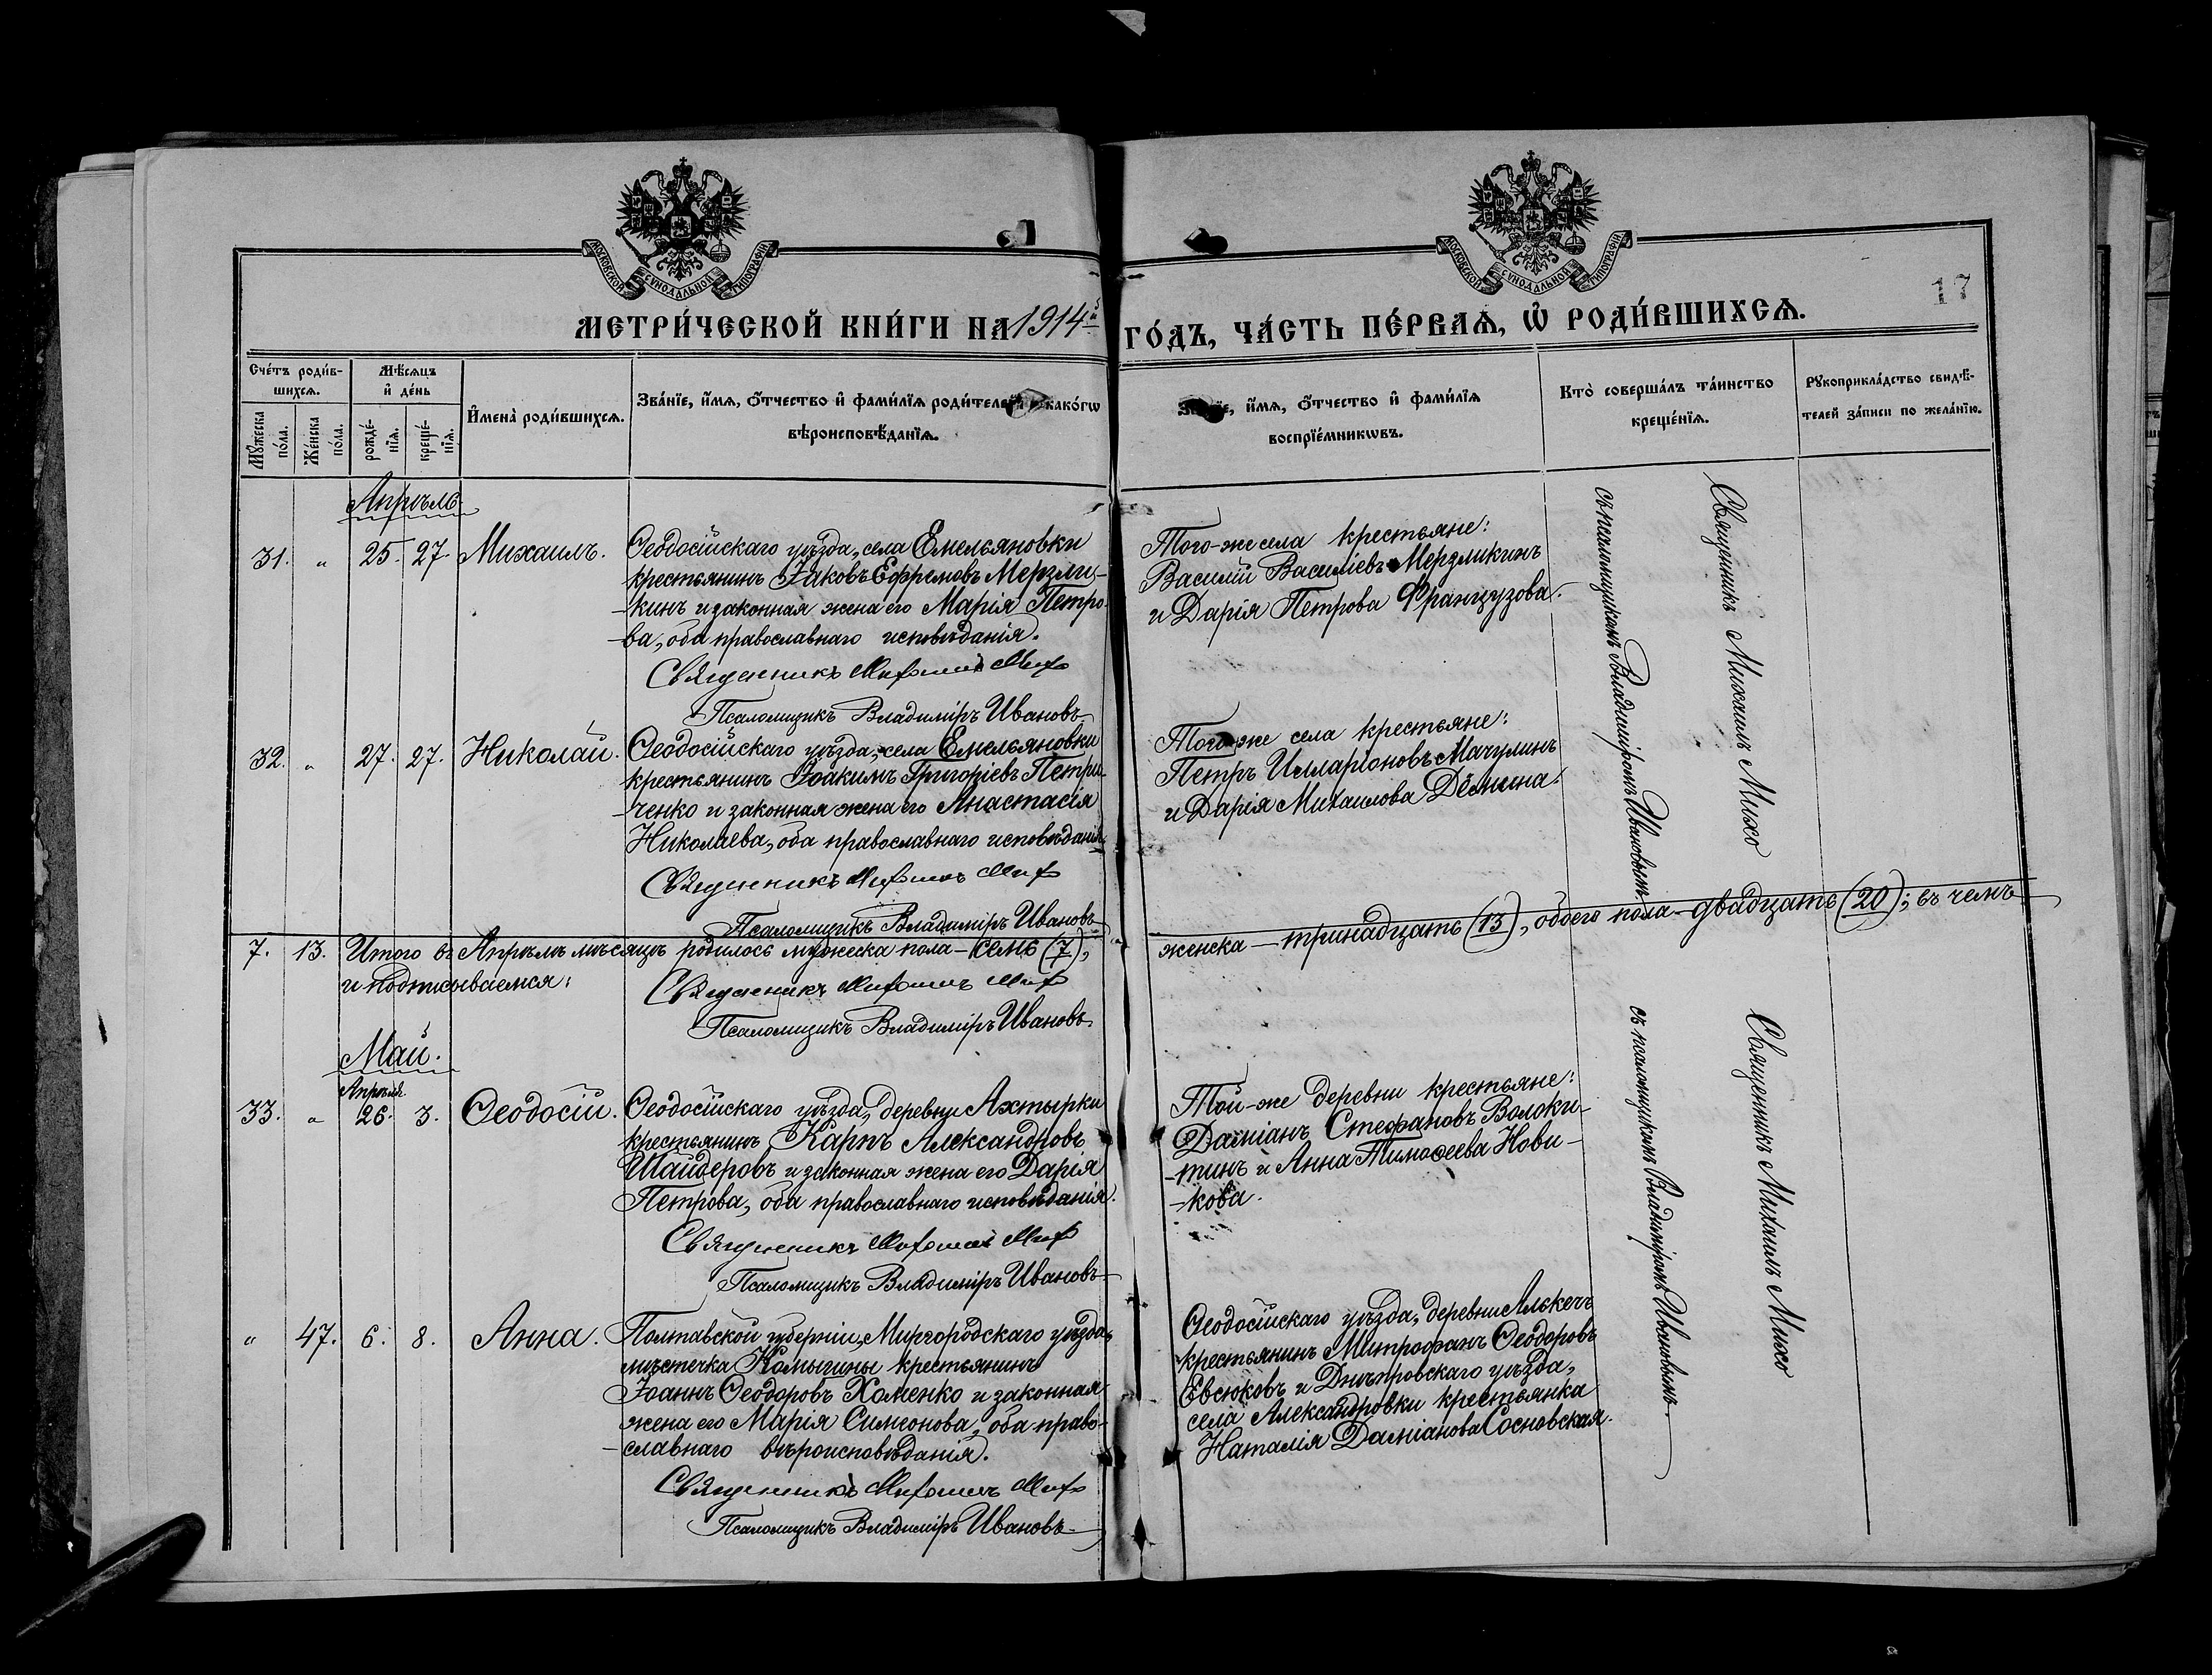 МОСКОВСКОЙ СУНОДАЛЬНОЙ ТИПОГРАФІИ
МОСКОВСКОЙ СУНОДАЛЬНОЙ ТИПОГРАФІИ
17
МЕТРИ́ЧЕСКОЙ КНИ́ГИ НА 1914й ГО́ДЪ, ЧА́СТЬ ПЕ́РВАѦ, Ѡ РОДИ́ВШИХСѦ.
Сче́тъ роди́в-
шихсѧ.
Мѣ́сѧцъ
и҆ де́нь
Мꙋ́жеска
по́ла.
Же́нска
по́ла.
рожде́-
нїѧ.
креще́-
нїѧ.
И҆мена̀ роди́вшихсѧ.
Зва́нїе, и҆́мѧ, ѻ҆́тчество и҆ фами́лїѧ роди́телей, и҆ како́гѡ
вѣроисповѣ́данїѧ.
Зва́нїе, и҆́мѧ, ѻ҆́тчество и҆ фами́лїѧ
воспрїе́мникѡвъ.
Кто̀ соверша́лъ та́инство
креще́нїѧ.
Рꙋкоприкла́дство свидѣ́-
телей за́писи по жела́нїю.
Апрѣль
31. " 25. 27. Михаилъ.
Ѳеодосійскаго уѣзда, села Емельяновки
крестьянинъ Іаковъ Ефремовъ Мерзли-
-кинъ и законная жена его Марія Петро-
-ва, оба православнаго исповѣданія.
Священникъ Михаилъ Михо
Псаломщикъ Владиміръ Ивановъ
Того-же села крестьяне:
Василій Василіевъ Мерзликинъ
и Дарія Петрова Французова.
Священникъ Михаилъ Михо
съ псаломщикомъ Владиміромъ Ивановымъ.
32. " 27. 27. Николай.
Ѳеодосійскаго уѣзда, села Емельяновки
крестьянинъ Іоакимъ Григоріевъ Петри-
-ченко и законная жена его Анастасія
Николаева, оба православнаго исповѣданія.
Священникъ Михаилъ Михо
Псаломщикъ Владиміръ Ивановъ
Того-же села крестьяне:
Петръ Илларіоновъ Мачулинъ
и Дарія Михаилова Дёмина.
7. 13. Итого въ Апрѣлѣ мѣсяцѣ родилось мужеска пола – семь (7), женска – тринадцать (13), обоего пола – двадцать (20); въ чемъ
и подписываемся:
Священникъ Михаилъ Михо
Псаломщикъ Владиміръ Ивановъ
Май.
Апрѣля
33. " 26. 3. Ѳеодосій.
Ѳеодосійскаго уѣзда, деревни Ахтырки
крестьянинъ Карпъ Александровъ
Шайдеровъ и законная жена его Дарія
Петрова, оба православнаго исповѣданія.
Священникъ Михаилъ Михо
Псаломщикъ Владиміръ Ивановъ
Той-же деревни крестьяне:
Даміанъ Стефановъ Волоки-
-тинъ и Анна Тимоѳеева Нови-
-кова.
Священникъ Михаилъ Михо
съ псаломщикомъ Владиміромъ Ивановымъ.
" 47. 6. 8. Анна.
Полтавской губерніи, Миргородскаго уѣзда,
мѣстечка Комыгины крестьянинъ
Іоаннъ Ѳеодоровъ Хоменко и законная
жена его Марія Симеонова, оба право-
-славнаго вѣроисповѣданія.
Священникъ Михаилъ Михо
Псаломщикъ Владиміръ Ивановъ
Ѳеодосійскаго уѣзда, деревни Алькечъ
крестьянинъ Митрофанъ Ѳеодоровъ
Евсюковъ и Днѣпровскаго уѣзда,
села Александровки крестьянка
Наталія Даміанова Сосновская.